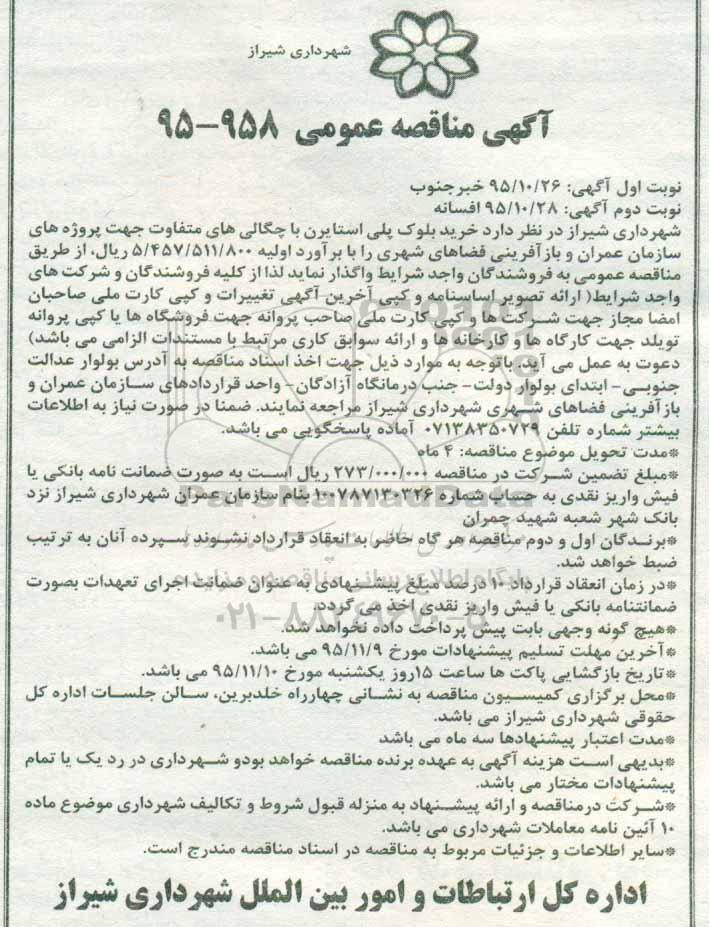 شهرداری شیراز
آگهی مناقصه عمومی ۹۵۸-۹۵
نوبت اول آگهی: ۹۵/۱۰/۲۶ خبرجنوب
نوبت دوم آگهی: ۹۵/۱۰/۲۸ افسانه
شهرداری شیراز در نظر دارد خرید بلوک پلی استایرن با چگالی های متفاوت جهت پروژه های
سازمان عمران و بازآفرینی فضاهای شهری را با برآورد اولیه ۵/۴۵۷/۵۱۱/۸۰۰ ریال، از طریق
مناقصه عمومی به فروشندگان واجد شرایط واگذار نماید لذا از کلیه فروشندگان و شرکت های
واجد شرایط( ارائه تصویر اساسنامه و کپی آخرین آگهی تغییرات و کپی کارت ملی صاحبان
امضا مجاز جهت شرکت ها و کپی کارت ملی صاحب پروانه جهت فروشگاه ها یا کپی پروانه
تویلد جهت کارگاه ها و کارخانه ها و ارائه سوابق کاری مرتبط با مستندات الزامی می باشد)
دعوت به عمل می آید. باتوجه به موارد ذیل جهت اخذ اسناد مناقصه به آدرس بولوار عدالت
جنوبی- ابتدای بولوار دولت- جنب درمانگاه آزادگان- واحد قراردادهای سازمان عمران و
بازآفرینی فضاهای شهری شهرداری شیراز مراجعه نمایند. ضمنا در صورت نیاز به اطلاعات
بیشتر شماره تلفن ۰۷۱۳۸۳۵۰۷۲۹ آماده پاسخگویی می باشد.
*مدت تحویل موضوع مناقصه: ۴ ماه
*مبلغ تضمین شرکت در مناقصه ۲۷۳/۰۰۰/۰۰۰ ریال است به صورت ضمانت نامه بانکی یا
فیش واریز نقدی به حساب شماره ۱۰۰۷۸۷۱۳۰۳۲۶ بنام سازمان عمران شهرداری شیراز نزد
بانک شهر شعبه شهید چمران
*برندگان اول و دوم مناقصه هر گاه حاضر به انعقاد قرارداد نشوند سپرده آنان به ترتیب
ضبط خواهد شد.
*در زمان انعقاد قرارداد ۱۰ درصد مبلغ پیشنهادی به عنوان ضمانت اجرای تعهدات بصورت
ضمانتنامه بانکی یا فیش واریز نقدی اخذ می گردد.
*هیچ گونه وجهی بابت پیش پرداخت داده نخواهد شد.
*آخرین مهلت تسلیم پیشنهادات مورخ ۹۵/۱۱/۹ می باشد.
*تاریخ بازگشایی پاکت ها ساعت ۱۵روز یکشنبه مورخ ۹۵/۱۱/۱۰ می باشد.
*محل برگزاری کمیسیون مناقصه به نشانی چهارراه خلدبرین، سالن جلسات اداره کل
حقوقی شهرداری شیراز می باشد.
*مدت اعتبار پیشنهادها سه ماه می باشد
*بدیهی است هزینه آگهی به عهده برنده مناقصه خواهد بودو شهرداری در رد یک یا تمام
پیشنهادات مختار می باشد.
*شرکت درمناقصه و ارائه پیشنهاد به منزله قبول شروط و تکالیف شهرداری موضوع ماده
۱۰ آئین نامه معاملات شهرداری می باشد.
*سایر اطلاعات و جزئیات مربوط به مناقصه در اسناد مناقصه مندرج است.
اداره کل ارتباطات و امور بین الملل شهرداری شیراز
ParsNamadData
پایگاه اطلاع رسانی مناقصه و مزایده